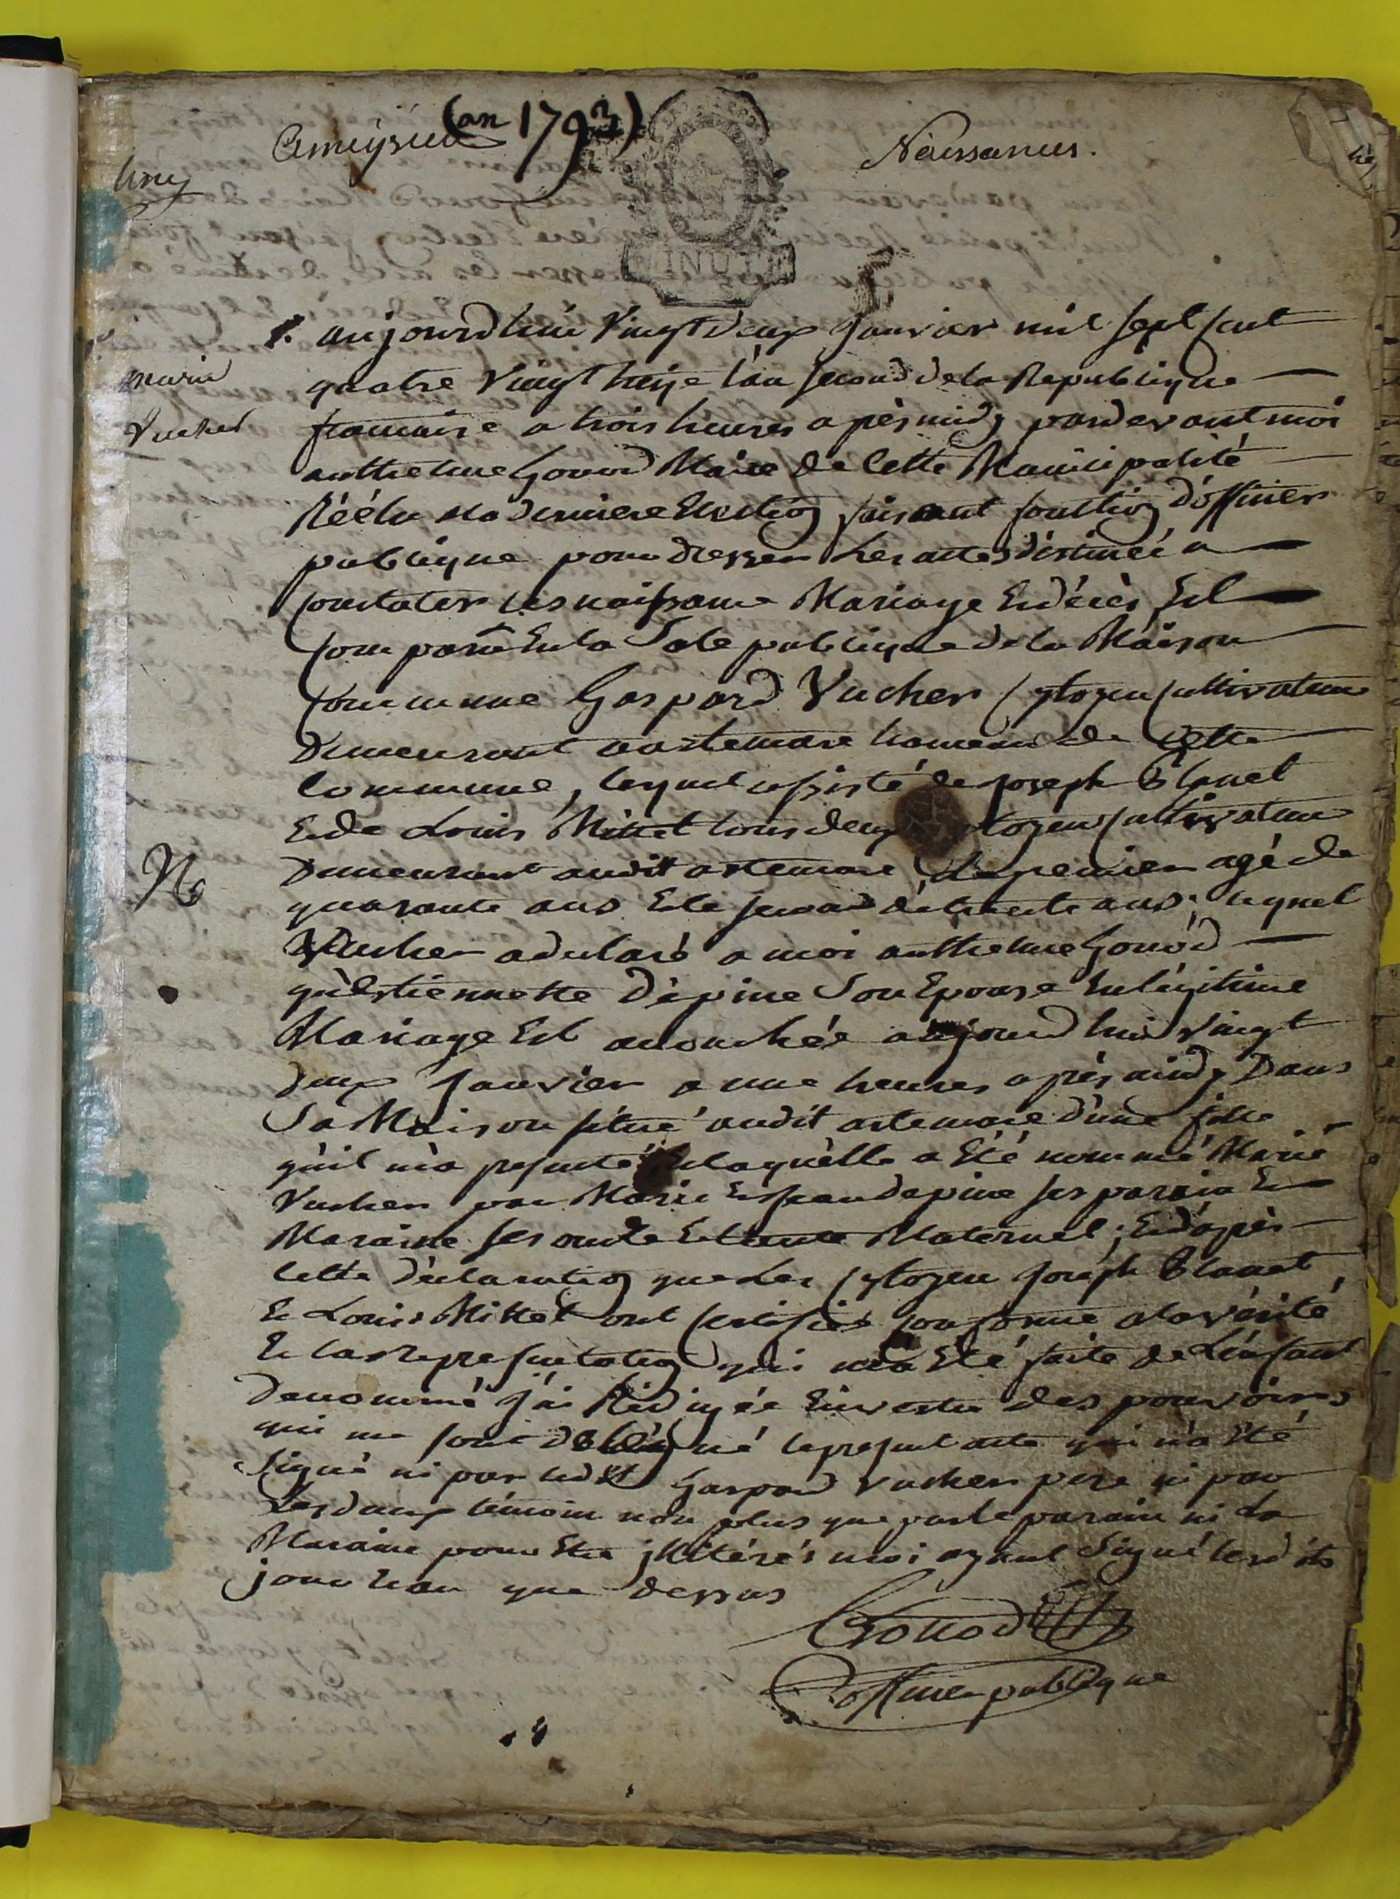 (an 1793)
Ameyzieu
Naissances.
MINUTE
1. aujourdhui vingt deux janvier mil sept cent
marie
Vucher
quatre vingt treize lan second de la Republique
francaise a trois heures apès midy pardevant moi
anthelme Gonod Maire de Cette Municipalité
Réélu a la derniere Election faisant fonction d'officier
publique pour dresser les actes destinéé a
constater les naissance Mariage Et décès Est
comparu En la Sale publique de la Maison
commune Gaspard Vucher cytoyen cultivateur
Demeurant a artemare hameau de Cette
Commune, lequel assisté de joseph Blanet
Et de Louis Mittet tous deux cytoyen cultivateur
Demeurant audit artemare, Le premier agé de
quarante ans Et le second de trente ans, lequel
Vucher a declaré a moi anthelme Gonod
qu'Estiennette Dépine Son Epouse En légitime
Mariage Est accouchée aujourd hui vingt
deux janvier a une heures après midy Dans
Sa Maison située audit artemare d'une fille
qu'il m'a presenté Et laquelle a Eté nommé Marie
Vucher par Marie Et jean depine ses parain Et
Maraine ses oncle Et tante Maternel; Et d'après
Cette déclaration que Les cytoyen joseph Blanet
Et Louis Mittet ont certifiés conforme a la vérité
Et la representation qui m'a Eté faite de L'enfant
denommé j'ai Rédigée En vertu des pouvoirs
qui me sont délégué le present acte qui n'a Eté
Signé ni par ledit Gaspard Vucher pere ni par
Les deux témoin non plus que par le parain ni La
Maraine pour Etre illitérés moi ayant Signé lesdits
jour Et an que dessus
Gonod
officier publique